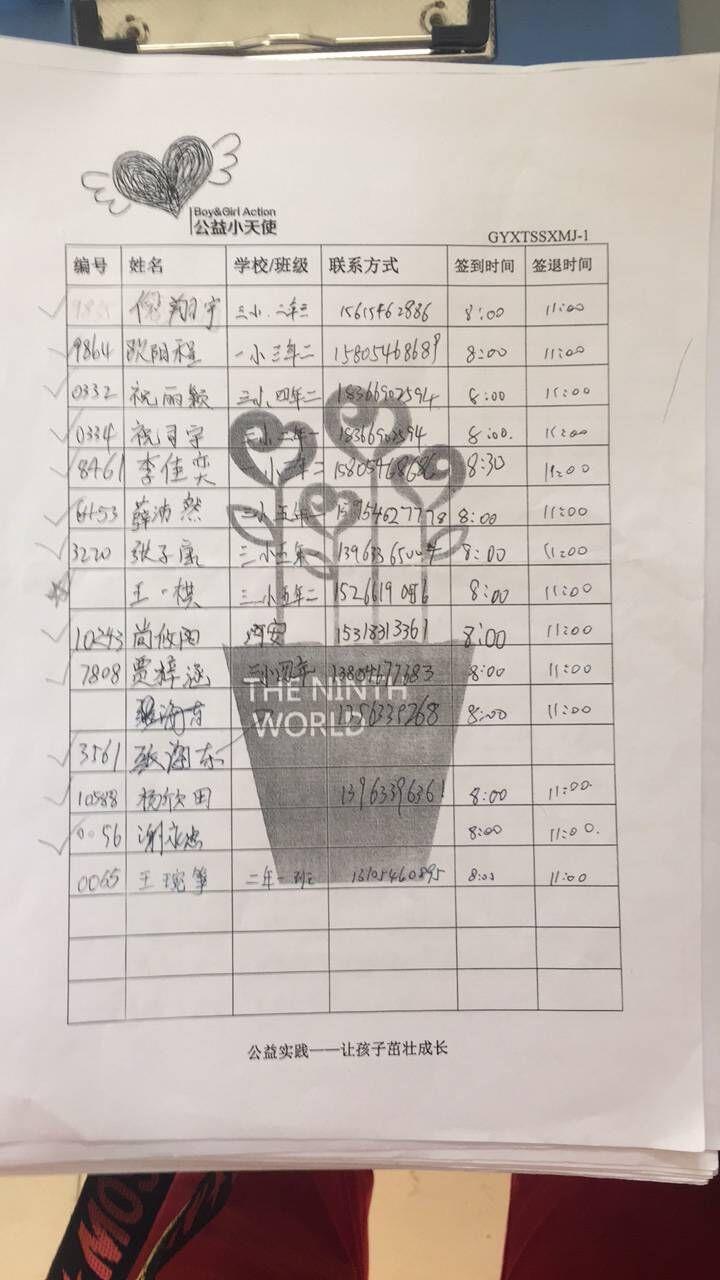 Boy&Girl Action
公益小天使
GYXTSSXMJ-1
编号 姓名 学校/班级 联系方式 签到时间 签退时间
翔宇 三小.二年三 15615462886 8:00 11:00
9864 欧阳程 一小三年二 15805468689 8:00 11:00
0332 祝丽颖 三小四年二 18366902594 8:00 11:00
0334 祝司宇 三小二年一 18366902594 8:00. 11:00
8461 李佳奕 一小三年二 15805468686 8:30 11:00
6453 薛沛然 三小五年 15954627778 8:00 11:00
3220 张子 三小五年 8:00 11:00
王一棋 三小五年二 8:00 11:00
10243 尚 河安 15318313361 8:00 11:00
7808 贾梓涵 三小四年 13804677383 8:00 11:00
8:00 11:00
THE NINTH
WORLD
3561 张海东
10588 杨欣田 13963396361 8:00 11:00.
0096 谢永 8:00 11:00.
0065 王琬筝 二年一班 13105460895 8:00 11:00
公益实践——让孩子茁壮成长